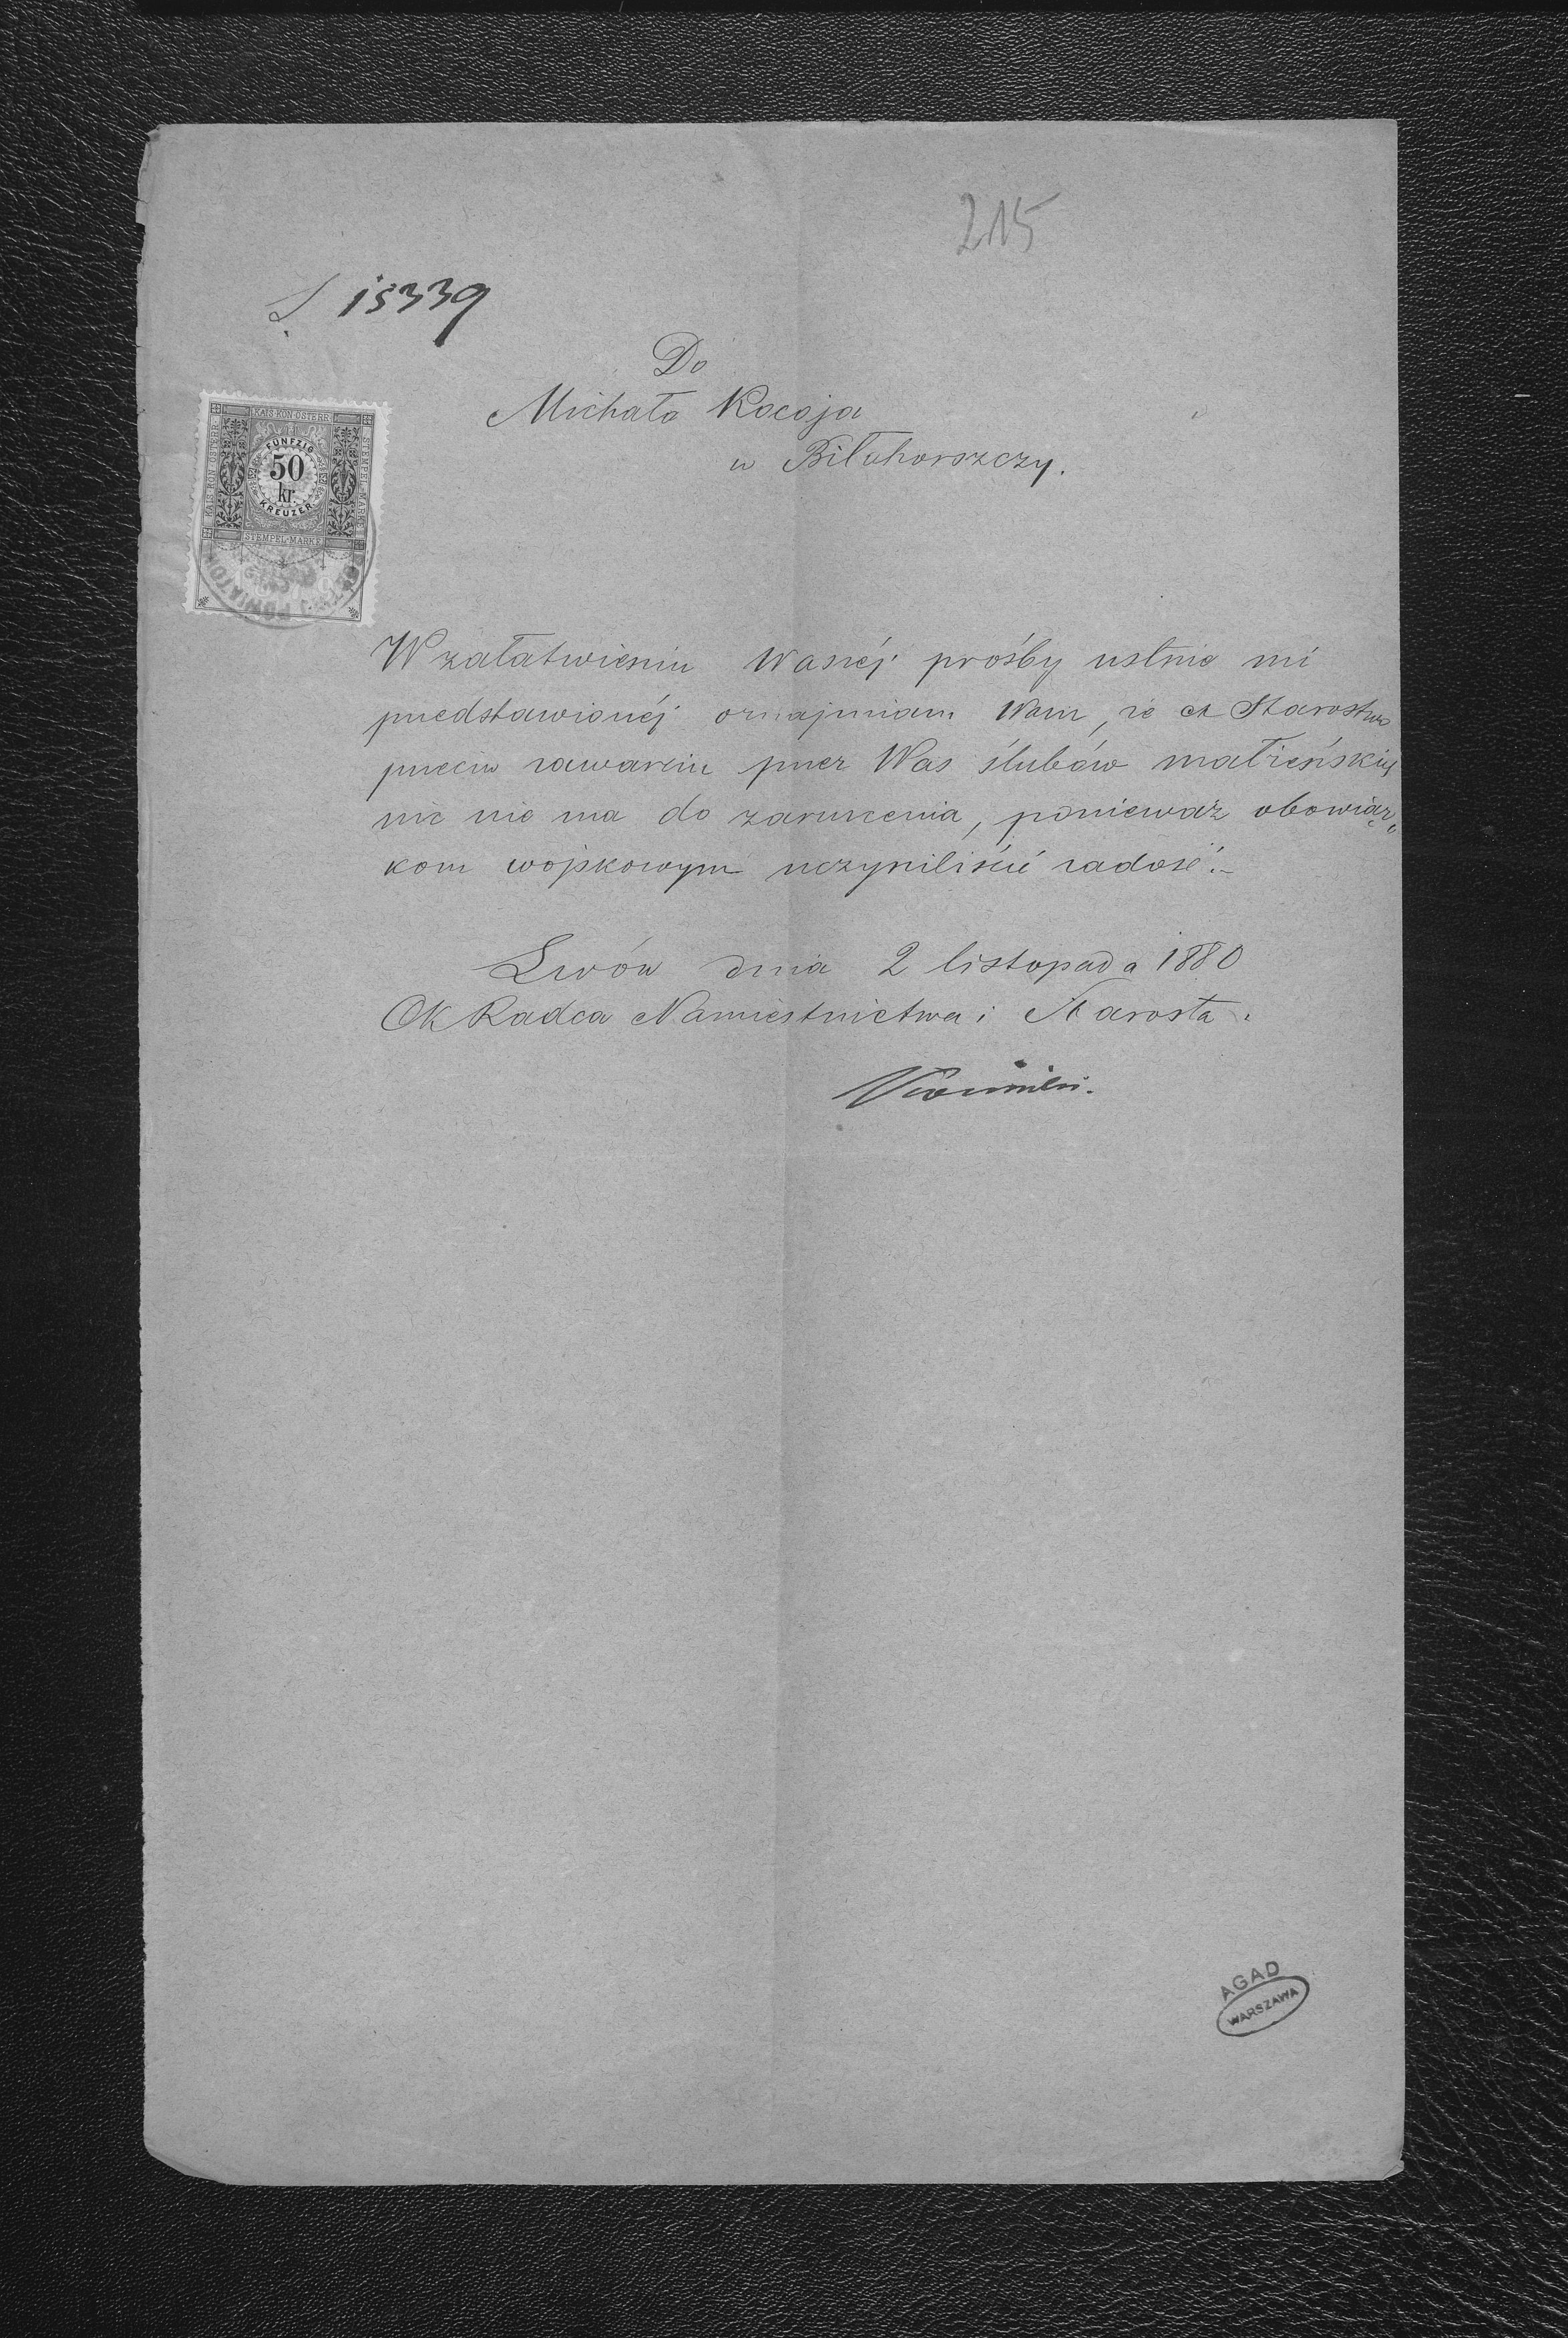 215
L. 15339
Do
Michała Kocaja
w Biłohorszczy.
KAIS. KÖN. ÖSTERR.
STEMPEL-MARKE
FÜNFZIG
50
kr.
KREUZER
1879
STEMPEL-MARKE
W załatwieniu Waszéj prośby ustnie mi
przedstawionéj oznajmiam Wam, że ck Starostwo
przeciw zawarciu przez Was ślubów małżeńskich
nic nie ma do zarzucenia, ponieważ obowiąz„
kom wojskowym uczyniliście zadość.–
Lwów dnia 2 listopada 1880
Ck Radca Namiestnictwa i Starosta.
AGAD
WARSZAWA